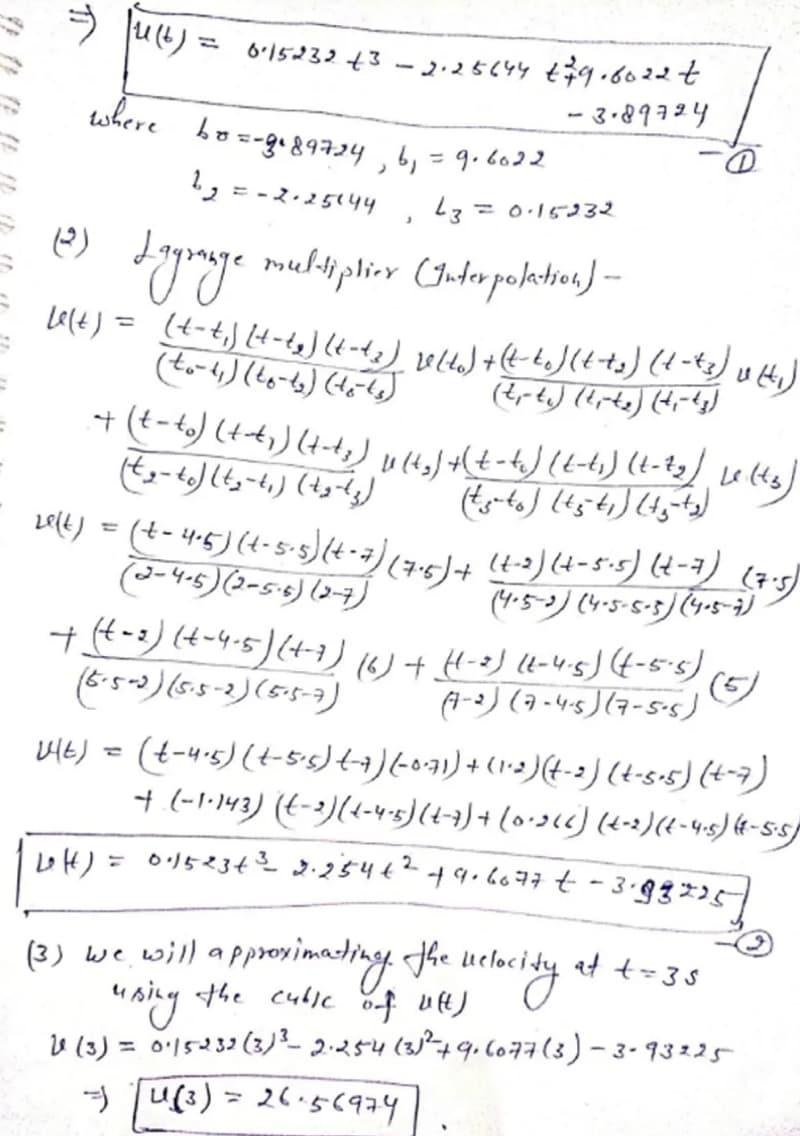 ⇒ u(t) = 0.15232 t³ - 2.25644 t² + 9.6022 t
- 3.89724
— ①
where b₀ = -3.89724, b₁ = 9.6022
b₂ = -2.25644, b₃ = 0.15232
(2) Lagrange multiplier (Interpolation) -
v(t) = (t-t₁)(t-t₂)(t-t₃) / (t₀-t₁)(t₀-t₂)(t₀-t₃) v(t₀) + (t-t₀)(t-t₂)(t-t₃) / (t₁-t₀)(t₁-t₂)(t₁-t₃) v(t₁)
+ (t-t₀)(t-t₁)(t-t₃) / (t₂-t₀)(t₂-t₁)(t₂-t₃) v(t₂) + (t-t₀)(t-t₁)(t-t₂) / (t₃-t₀)(t₃-t₁)(t₃-t₂) v(t₃)
v(t) = (t-4.5)(t-5.5)(t-7) / (2-4.5)(2-5.5)(2-7) (7.5) + (t-2)(t-5.5)(t-7) / (4.5-2)(4.5-5.5)(4.5-7) (7.5)
+ (t-2)(t-4.5)(t-7) / (5.5-2)(5.5-2)(5.5-7) (6) + (t-2)(t-4.5)(t-5.5) / (7-2)(7-4.5)(7-5.5) (5)
v(t) = (t-4.5)(t-5.5)(t-7)(-0.71) + (1.2)(t-2)(t-5.5)(t-7)
+ (-1.143)(t-2)(t-4.5)(t-7) + (0.266)(t-2)(t-4.5)(t-5.5)
v(t) = 0.1523t³ - 2.254t² + 9.6077 t - 3.93225
— ②
(3) we will approximating the velocity at t=3s
using the cubic of v(t)
v(3) = 0.15232(3)³ - 2.254(3)² + 9.6077(3) - 3.93225
⇒ v(3) = 26.56974.